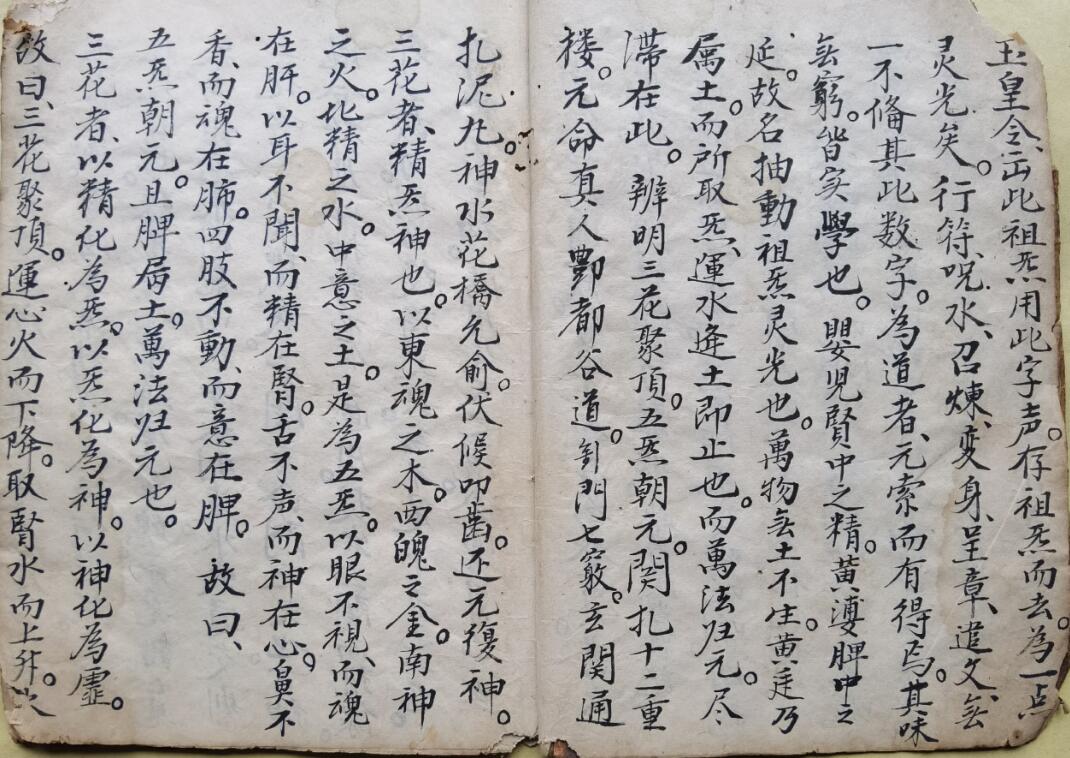 玉皇令、此祖炁用此字声。存祖炁而去。為一点
灵光矣。行符、呪水、召煉、变身、呈章、遣文、無
一不俻其此数字。為道者、元索而有得焉。其味
無窮。皆实學也。嬰児賢中之精。黄婆脾中之
延。故名抽動祖炁灵光也。萬物無土不生。黄庭乃
属土。而所取炁、運水逢土即止也。而萬法归元。尽
滯在此。辨明三花聚頂。五炁朝元。関扎十二重
楼。元命真人酆都谷道。到門七竅。玄関通
扎泥九。神水花橋元俞。伏候叩齒。还元復神。
三花者、精炁神也。以東魂之木。西魄之金。南神
之火。北精之水。中意之土。是為五炁。以眼不視、而魂
在肝。以耳不聞、而精在腎。舌不声、而神在心。鼻不
香、而魂在肺。四肢不動、而意在脾。故曰、
五炁朝元。且脾属土。萬法归元也。
三花者、以精化為炁。以炁化為神。以神化為虛。
故曰、三花聚頂。運心火而下降。取腎水而上升。